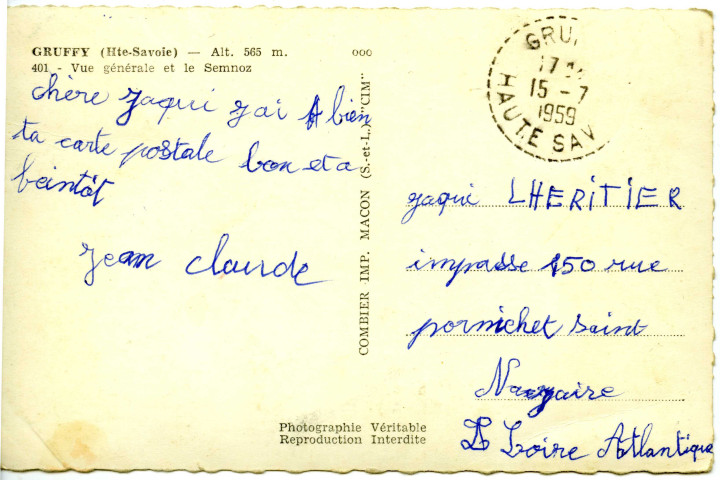 GRUFFY (Hte-Savoie) — Alt. 565 m. ooo
401 - Vue générale et le Semnoz
chère jaqui j'ai bien
ta carte postale bon et a
beintôt
jean claude
COMBIER IMP. MACON (S.-et-L.) "CIM"
GRUF
15 - 7
1959
HAUTE SAV
jaqui LHERITIER
impasse 150 rue
pornichet saint
Nazaire
Loire Atlantique
Photographie Véritable
Reproduction Interdite